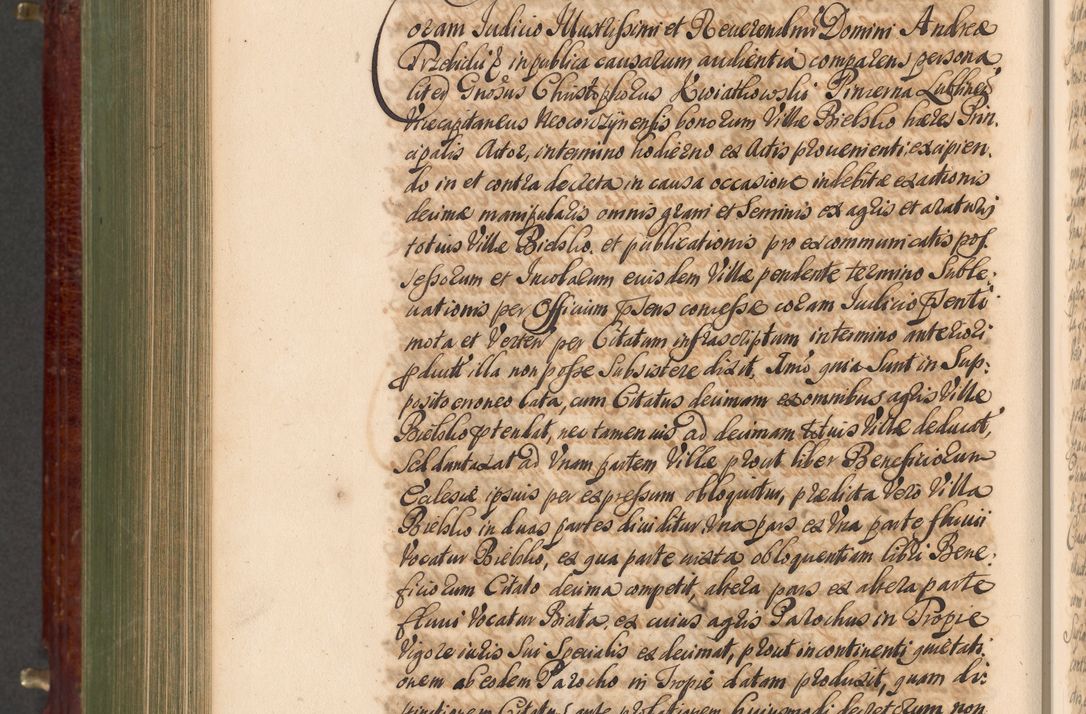 Coram Iudicio Illustrissimi et Reuerendissimi Domini Andreæ
Przebiduß in publica causarum audientia comparens persona
liter Gnosus Christophorus Kwiatkowski Pincerna Lublinen
Vicecapitaneus Neocorczynensis bonorum Villæ Bielsko hæres Prin,
cipalis Actor, in termino hodierno ex Actis proueniente excipien,
do in et contra decreta in causa occasione indebitæ exactionis
decimæ manipularis omnis grani et Seminis ex agris et araturis
totius Villæ Bielsko, et publicationis pro excommunicatis pos,
sessorum et Incolarum eiusdem Villæ pendente termino Suble,
uationis per Officium pñens concessæ coram Iudicio pñenti
mota et Verten per Citatum infrascriptum in termino anteriori
pducti illa non posse Subsistere dixit, Imo quia Sunt in Sup,
posito erroneo lata, cum Citatus decimam ex omnibus agris Villæ
Bielsko ptendat, nec tamen ius ad decimam totius Villæ deducat,
Sed duntaxat ad Vnam partem Villæ prout liber Beneficiorum
Ecclesiæ ipsius per expressum obloquitur, prædicta Vero Villa
Bielsko in duas partes diuiditur Vna pars ex Vna parte fluuii
Vocatur Bielsko, ex qua parte iuxta obloquentiam libri Bene,
ficiorum Citato decima competit, altera pars ex altera parte
fluuii Vocatur Biata, ex cuius agris Parochus in Tropie
Vigore iuris Sui Specialis ex decimat, prout in continenti quietati,
onem ab eodem Parocho in Tropie datam produxit, quam di,